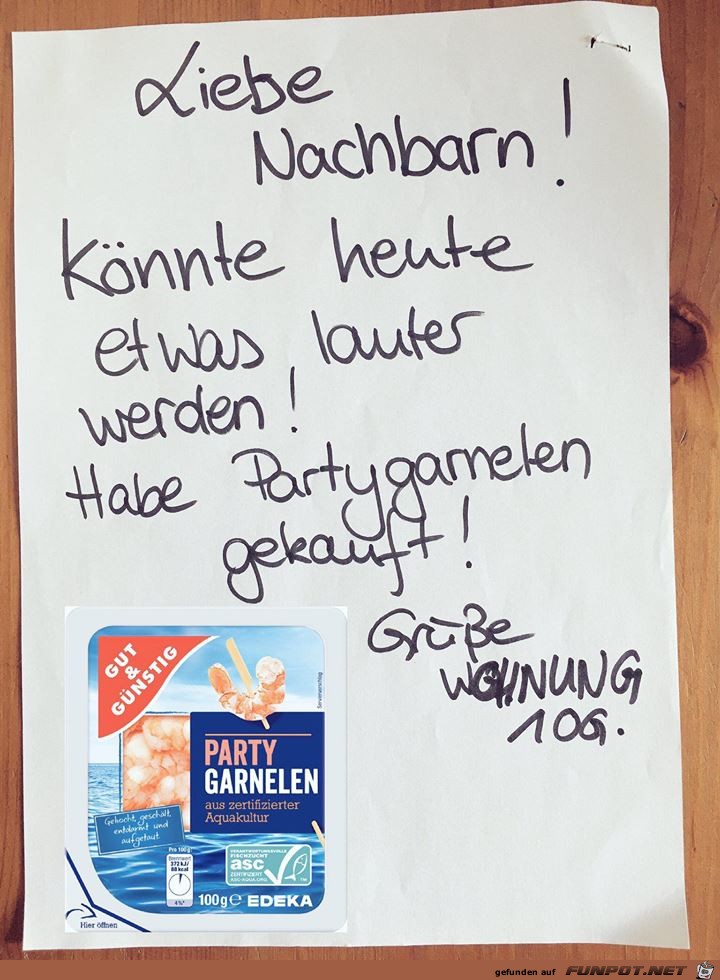 Liebe
Nachbarn!
Könnte heute
etwas lauter
werden!
Habe Partygarnelen
gekauft!
Grüße
WOHNUNG
1 OG.
GUT
&
GÜNSTIG
Serviervorschlag
PARTY
GARNELEN
aus zertifizierter
Aquakultur
Gekocht, geschält,
entdarmt und
aufgetaut.
Pro 100g
Brennwert
372 kJ/
88 kcal
4%*
VERANTWORTUNGSVOLLE
FISCHZUCHT
asc
ZERTIFIZIERT
ASC-AQUA.ORG
TM
100g e EDEKA
Hier öffnen
gefunden auf FUNPOT.NET